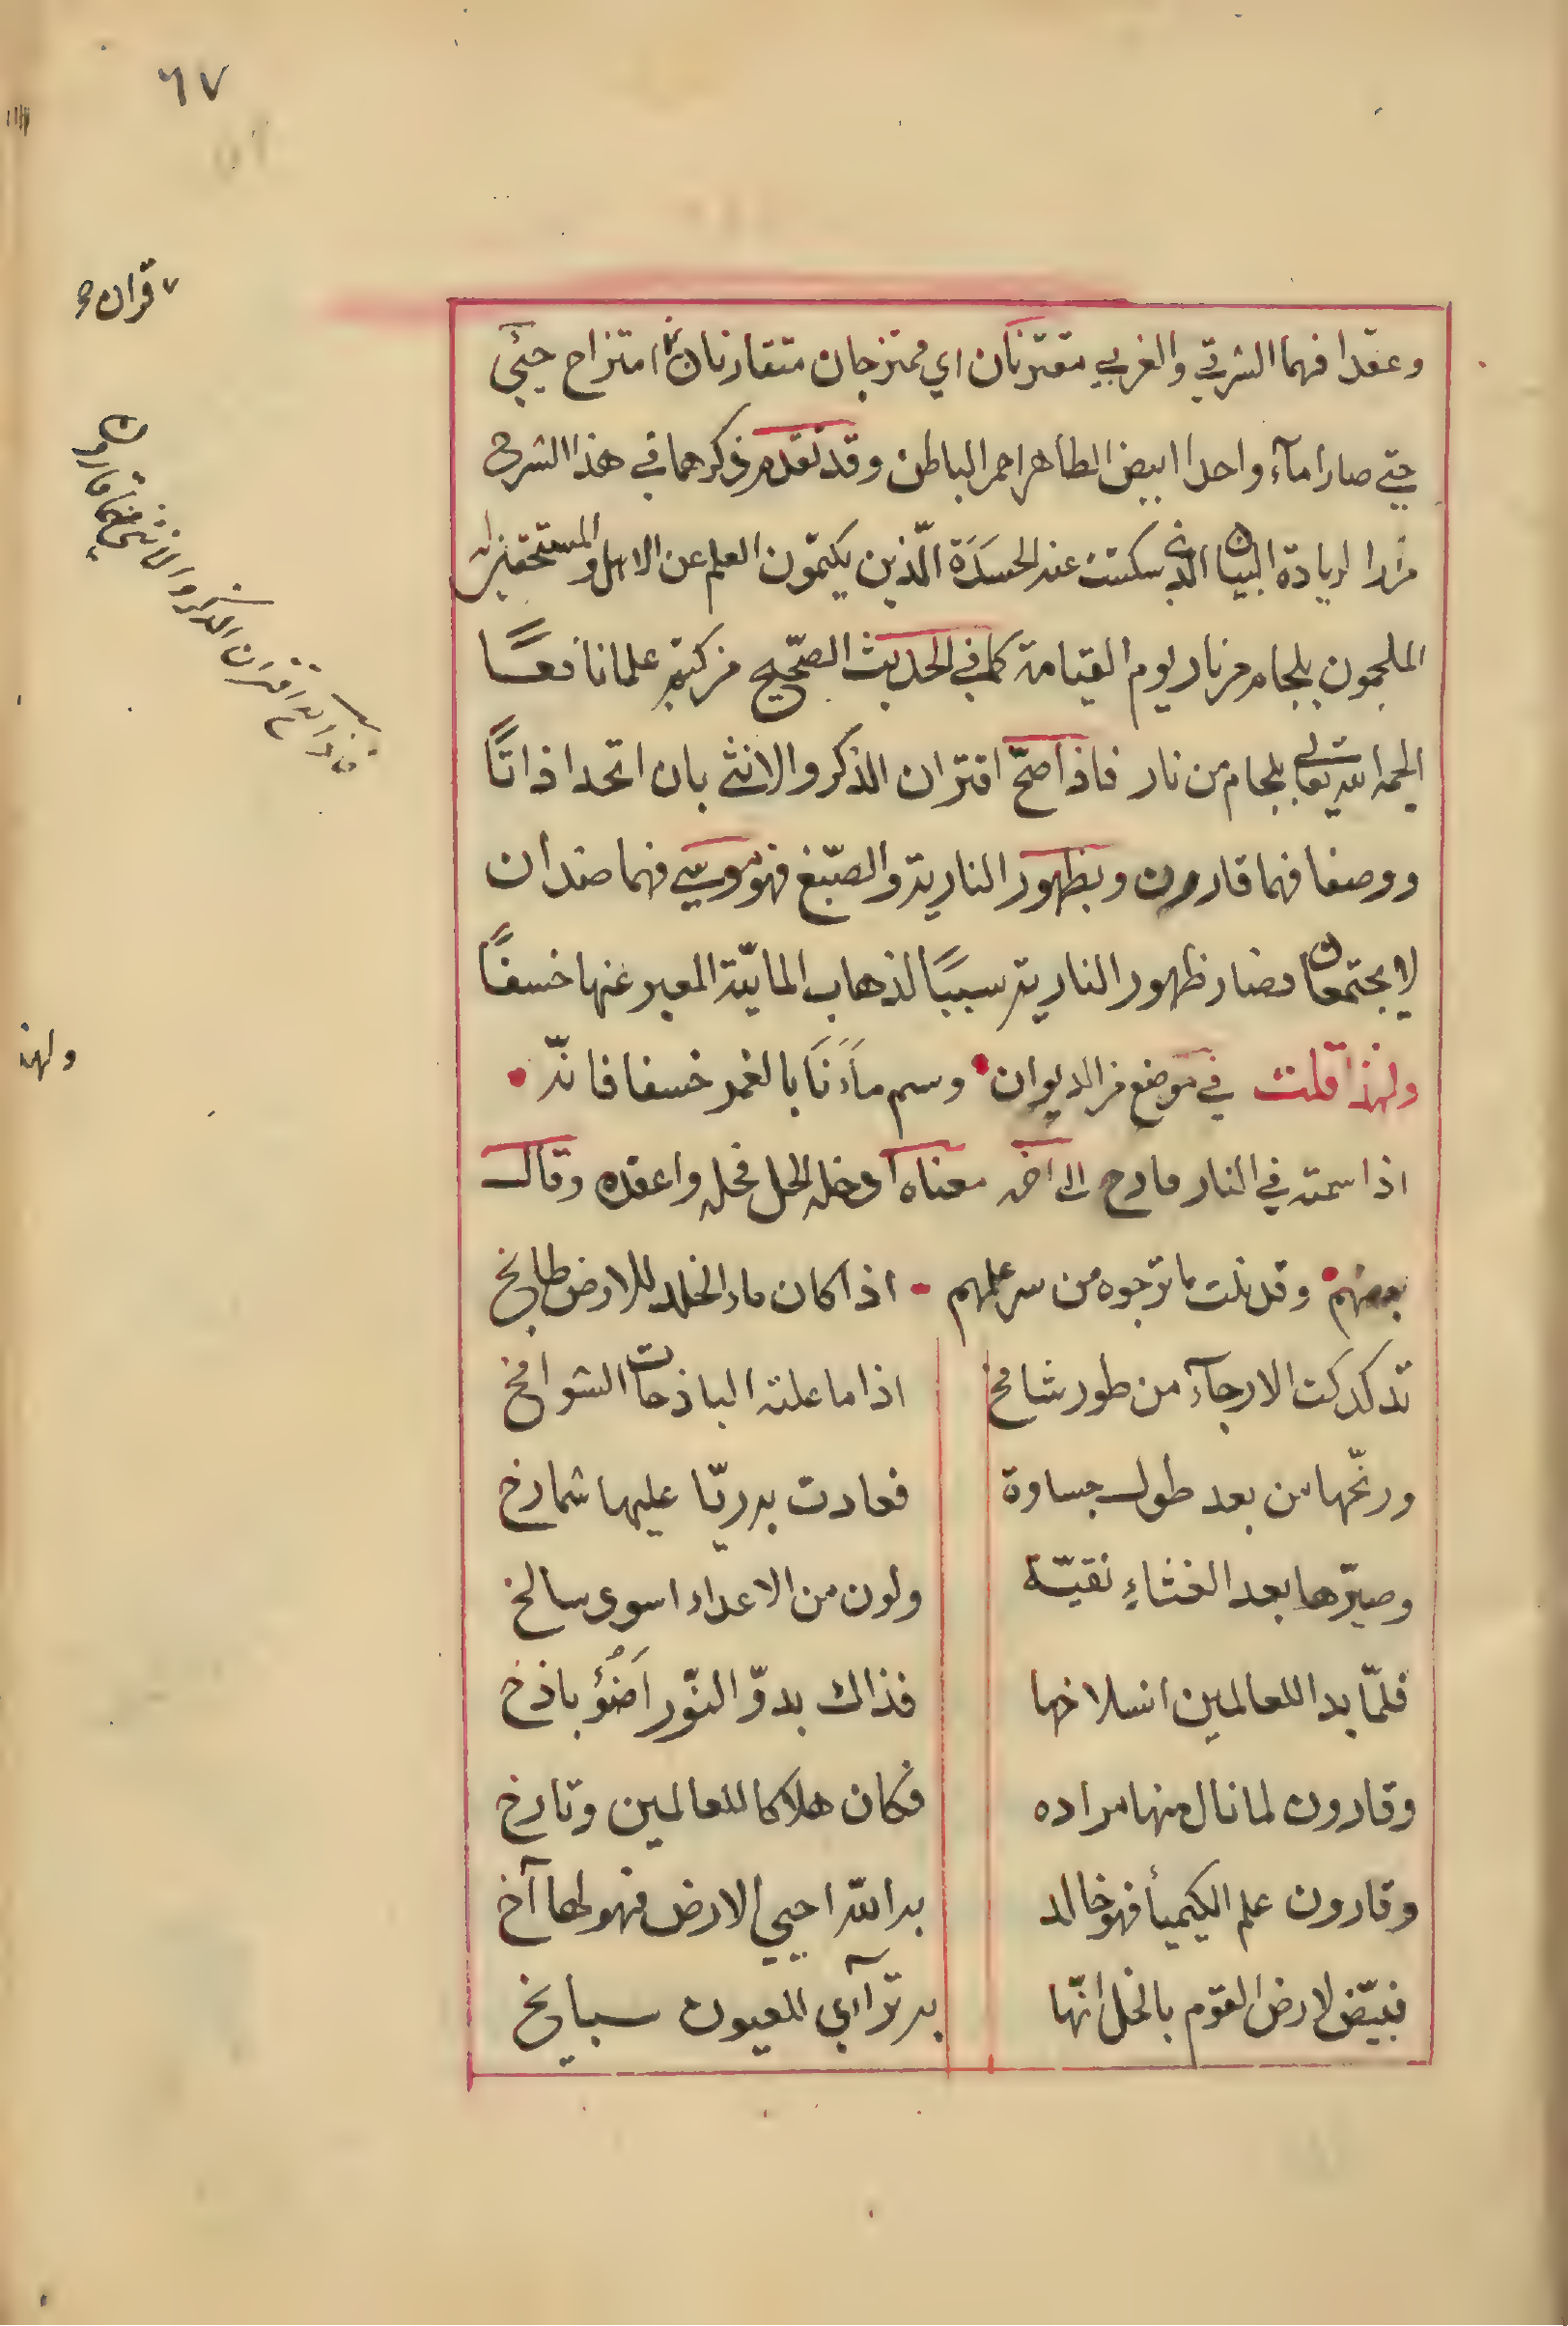 ٦٧
وعقدا فهما الشرقي والغربي مقترنان اي ممتزجان متقارنان امتزاج حبّي
حتي صارا مآء واحدا ابيض الطاهر احمر الباطن وقد تقدم ذكرهما في هذا الشرح
مرارا لزيادة البيان الذي سكتت عند الحَسَدَة الّذين يكتمون العلم عن الاهل والمستحقين
الملجمون بلجام من نار يوم القيامة كما في الحديث الصّحيح من كتم علما نافعًا
الجمه الله تعالي بلجام من نار فاذا صحّ اقتران الذكر والانثي بان اتحدا ذاتًا
ووصفا فهما قارون وبظهور النارية والصبّغ فهو موسي فهما ضدان
لا يجتمعان فصار ظهور النارية سببًا لذهاب المائيّة المعبر عنها خسفًا
ولهذا قلت في موضع من الديوان وسم ماءَنَا بالغمر خسفا فانّه
اذا سمته في النار مارح الى اخره معناه ادخله الحل فحله واعقده وقال
بعضهم وقد نلت ما ترجوه من سر علمهم اذا كان ماء الخلد للارض طابخ
تدكدكت الارجآء من طور شامخ اذا ما علته الباذخات الشوامخ
ورنّحها من بعد طول جساوة فعادت به ريّا عليها شمارخ
وصيّرها بعد الغثاءِ نقيّة ولون من الاعداء اسود سالخ
فلمّا بدا للعالمين انسلاخها فذاك بدوّ النّور اَضْوُؤ باذخ
وقارون لما نال منها مراده فكان هلاكا للعالمين وتارخ
وقارون علم الكيميأ فهو خالد به الله احيي الارض فهو لها آخ
فبيّض لارض القوم بالخل انّها به ترآاي للعيون سبايخ
قران
فاذا تم اقتران الذكر والانثي فهما قارون
ولهذا